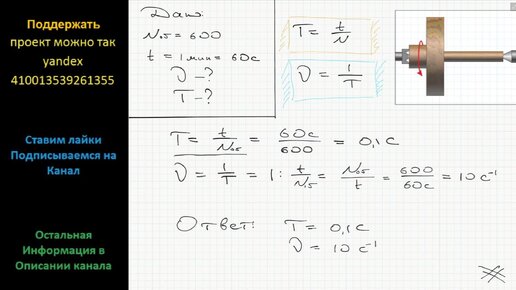 Поддержать
проект можно так
yandex
410013539261355
Ставим лайки
Подписываемся на
Канал
Остальная
Информация в
Описании канала
Дано:
Nоб = 600
t = 1 мин = 60 с
ν – ?
T – ?
T = t/N
ν = 1/T
T = t/Nоб = 60 с/600 = 0,1 с
ν = 1/T = 1 : t/Nб = Nоб/t = 600/60 с = 10 с⁻¹
Ответ: T = 0,1 с
ν = 10 с⁻¹